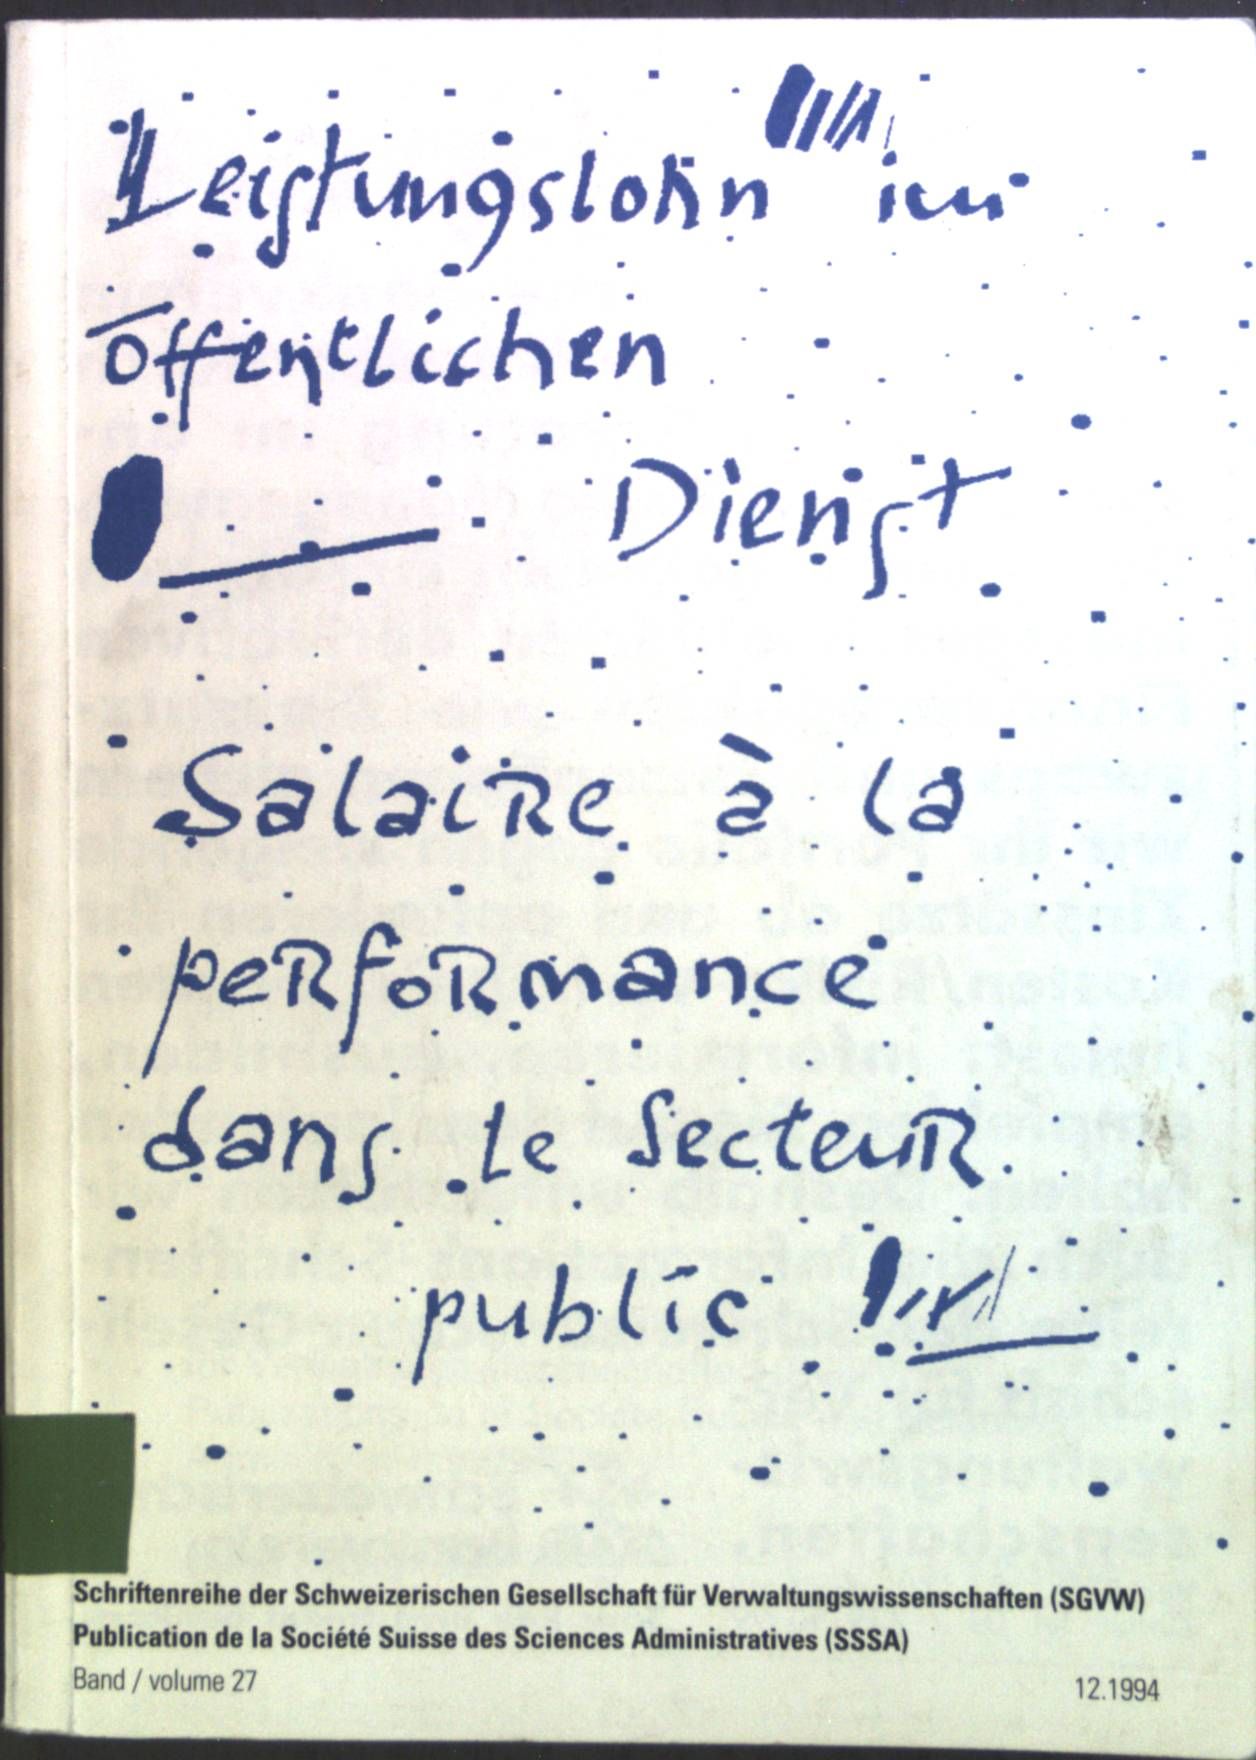 Leistungslohn im
öffentlichen
Dienst
Salaire à la
performance
dans le secteur
public
Schriftenreihe der Schweizerischen Gesellschaft für Verwaltungswissenschaften (SGVW)
Publication de la Société Suisse des Sciences Administratives (SSSA)
Band / volume 27
12.1994